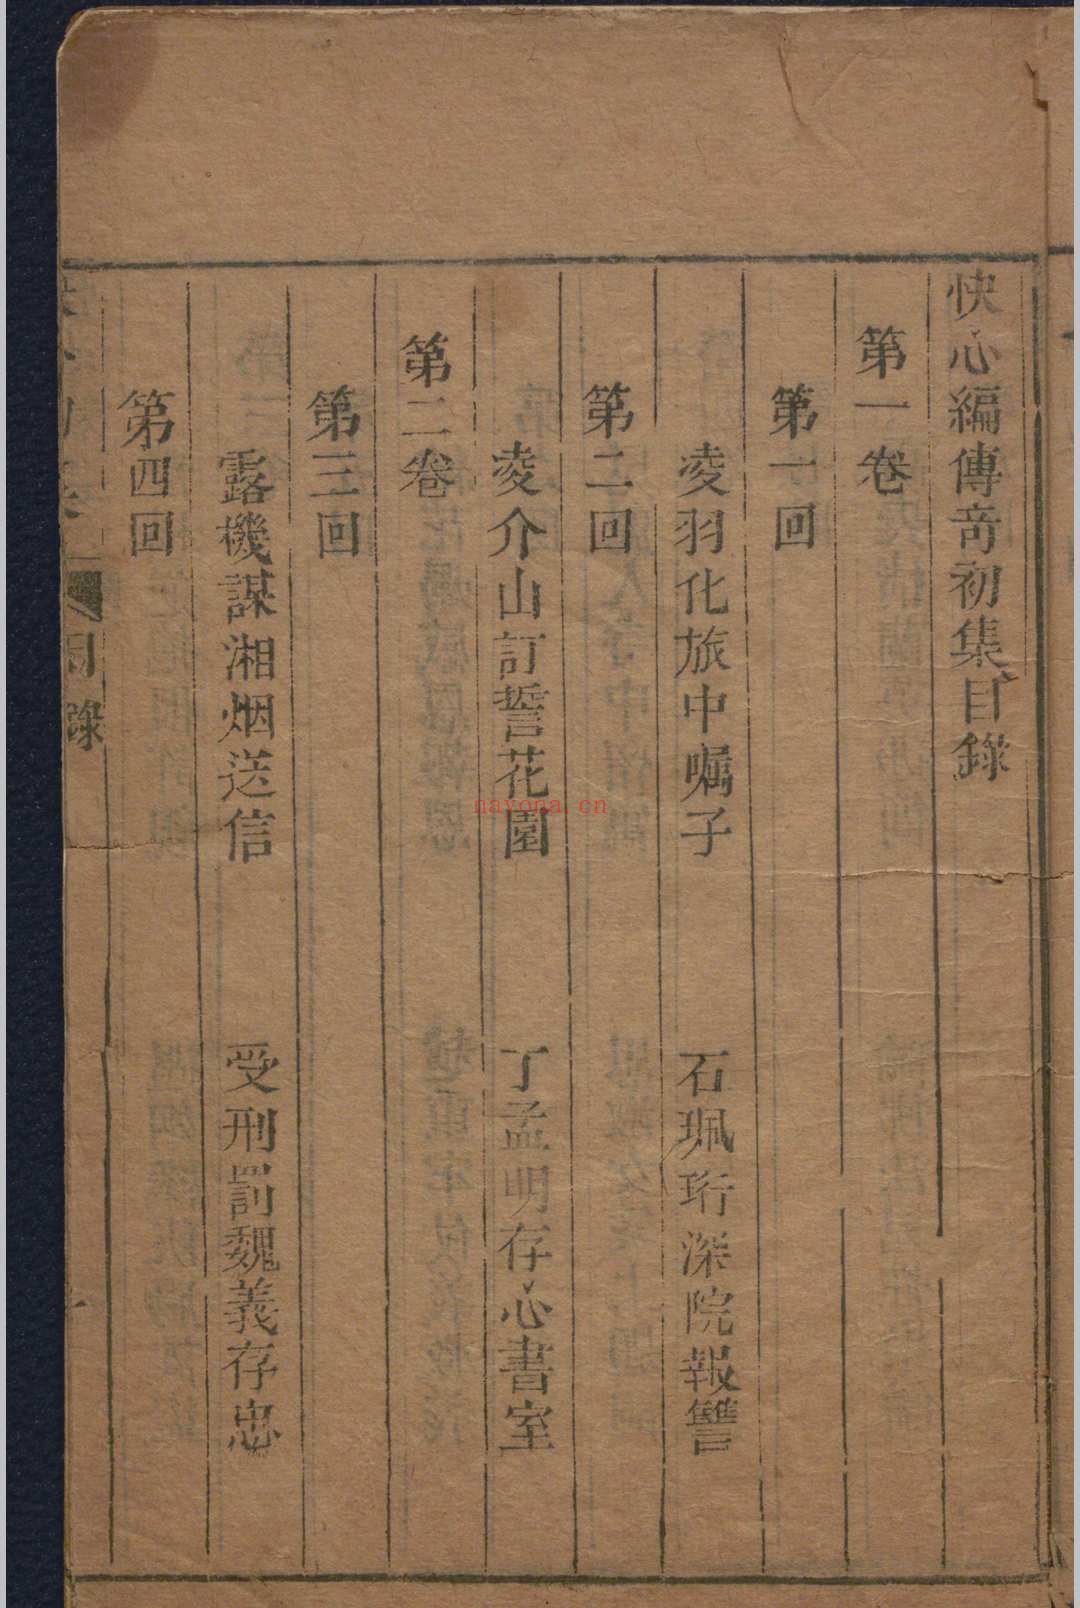 快心編傳奇初集目錄
第一卷
第一回
凌羽化旅中嘱子 石珮珩深院報讐
第二回
凌介山訂誓花園 丁孟明存心書室
第二卷
第三回
露機謀湘烟送信 受刑罰魏義存忠
第四回
目錄
nayona.cn